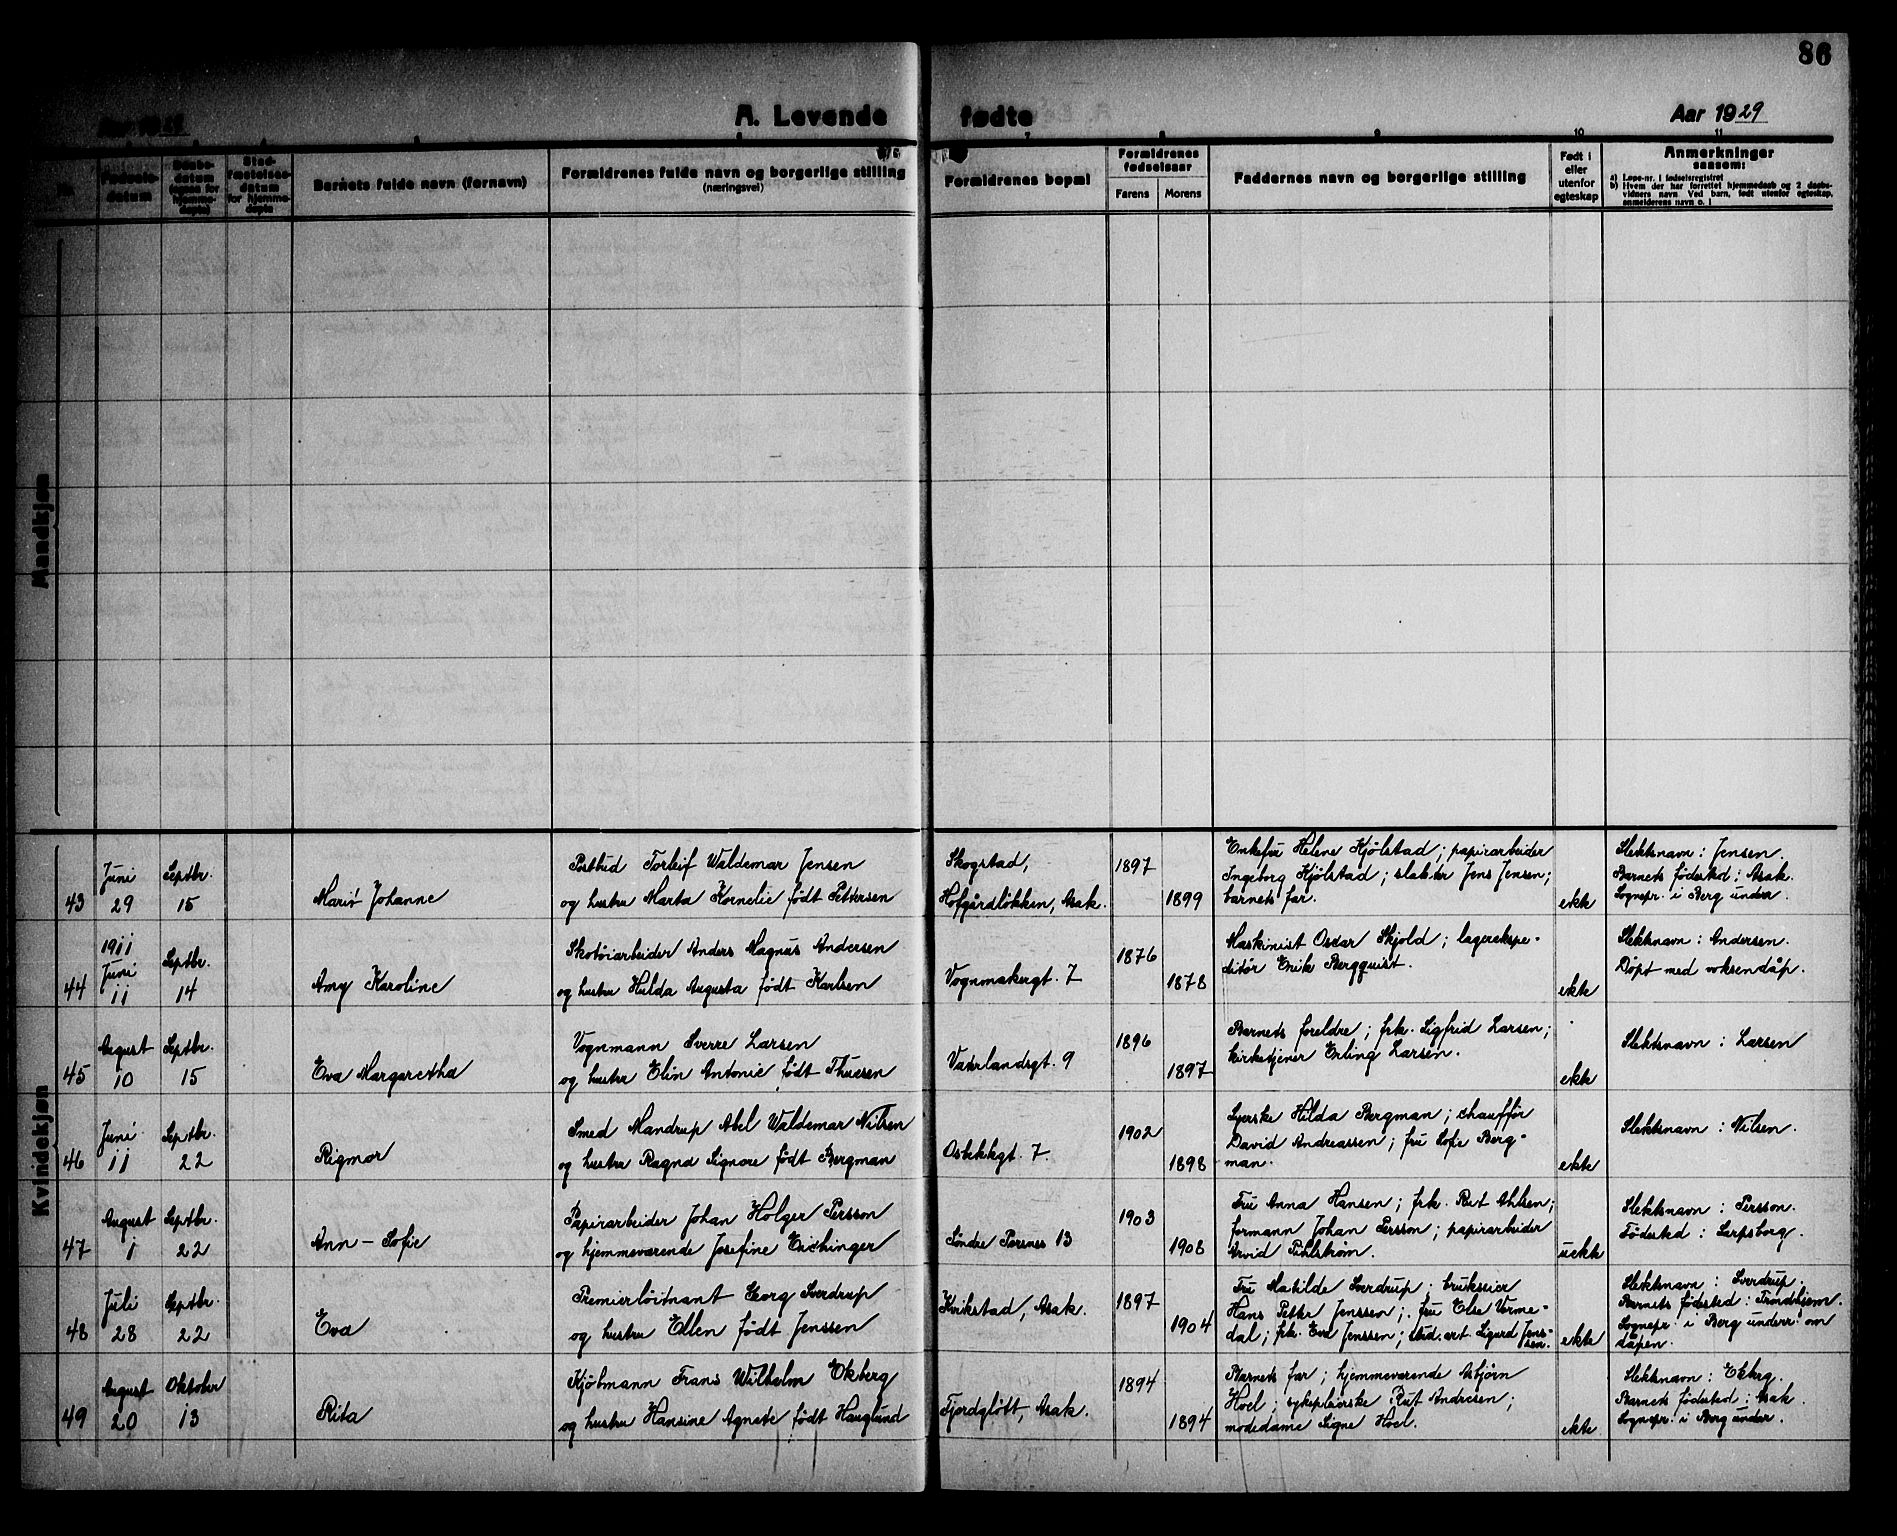 86
Aar 1929
A. Levende fødte
Aar 1929
Fødsels-
datum
Daabs-
datum
Stad-
fæstelses-
datum
for hjemme-
døpte
Barnets fulde navn (fornavn)
Forældrenes fulde navn og borgerlige stilling
(næringsvei)
Forældrenes bopæl
Forældrenes
fødselsaar
Farens
Morens
Faddernes navn og borgerlige stilling
Født i
eller
utenfor
egteskap
Anmerkninger
saasom:
a) Løpe-nr. i fødselsregistret
b) Hvem der har forrettet hjemmedaab og 2 daabs-
vidners navn. Ved barn, født utenfor egteskap,
anmelderens navn o. l
7
8
9
10
11
Mandkjøn
Kvindekjøn
43
Juni
29
Septbr.
15
Marie Johanne
Postbud Torleif Waldemar Jensen
og hustru Marta Kornelie født Pettersen
Skogstad,
Hofgårdløkken, Asak.
1897
1899
Enkefru Helene Kjølstad; papirarbeider
Ingeborg Kjølstad; slakter Jens Jensen;
barnets far.
ekte
Slektsnavn: Jensen.
Barnets fødested: Asak.
Sognepr. i Berg underr.
44
1911
Juni
11
Septbr.
14
Amy Karoline
Skotøiarbeider Anders Magnus Andersen
og hustru Hulda Augusta født Karlsen
Vognmakergt. 7
1876
1878
Maskinist Oscar Skjold; lagerekspe-
ditør Erik Bergquist.
ekte
Slektsnavn: Andersen.
Døpt med voksendåp.
45
August
10
Septbr.
15
Eva Margaretha
Vognmann Sverre Larsen
og hustru Elin Antonie født Thuesen
Vaterlandsgt. 9
1896
1897
Barnets foreldre; frk. Sigfrid Larsen;
kirketjener Erling Larsen.
ekte
Slektsnavn: Larsen
46
Juni
11
Septbr.
22
Rigmor
Smed Mandrup Abel Waldemar Nilsen
og hustru Ragna Signore født Bergman
Osbekkgt. 7.
1902
1898
Syerske Hilda Bergman; chauffør
David Andreassen; fru Sofie Berg-
man.
ekte
Slektsnavn: Nilsen.
47
August
1
Septbr.
22
Ann-Sofie
Papirarbeider Johan Holger Persson
og hjemmeværende Josefine Eichinger
Søndre Torsnes 13
1903
1908
Fru Anna Hansen; frk. Rut Ahlsen;
formann Johan Persson; papirarbeider
Arvid Pihlstrøm.
uekte
Slektsnavn: Persson.
Fødested: Sarpsborg.
48
Juli
28
Septbr.
22
Eva
Premierløitnant Georg Sverdrup
og hustru Ellen født Jenssen
Kvikstad, Asak.
1897
1904
Fru Matilde Sverdrup; brukseier
Hans Peter Jenssen; fru Else Vorme-
dal; frk. Eva Jenssen; stud. art. Sigurd Jens-
sen.
ekte
Slektsnavn: Sverdrup.
Barnets fødested: Trondhjem.
Sognepr. i Berg underr. om
dåpen.
49
August
20
Oktober
13
Rita
Kjøbmann Frans Wilhelm Ekberg
og hustru Hansine Agnete født Hauglund
Fjordgløtt, Asak.
1894
1894
Barnets far; hjemmeværende Asbjørn
Hoel; sykepleierske Rut Andresen;
motedame Signe Hoel.
ekte
Slektsnavn: Ekberg.
Barnets fødested: Asak.
Sognepr. i Berg underr.